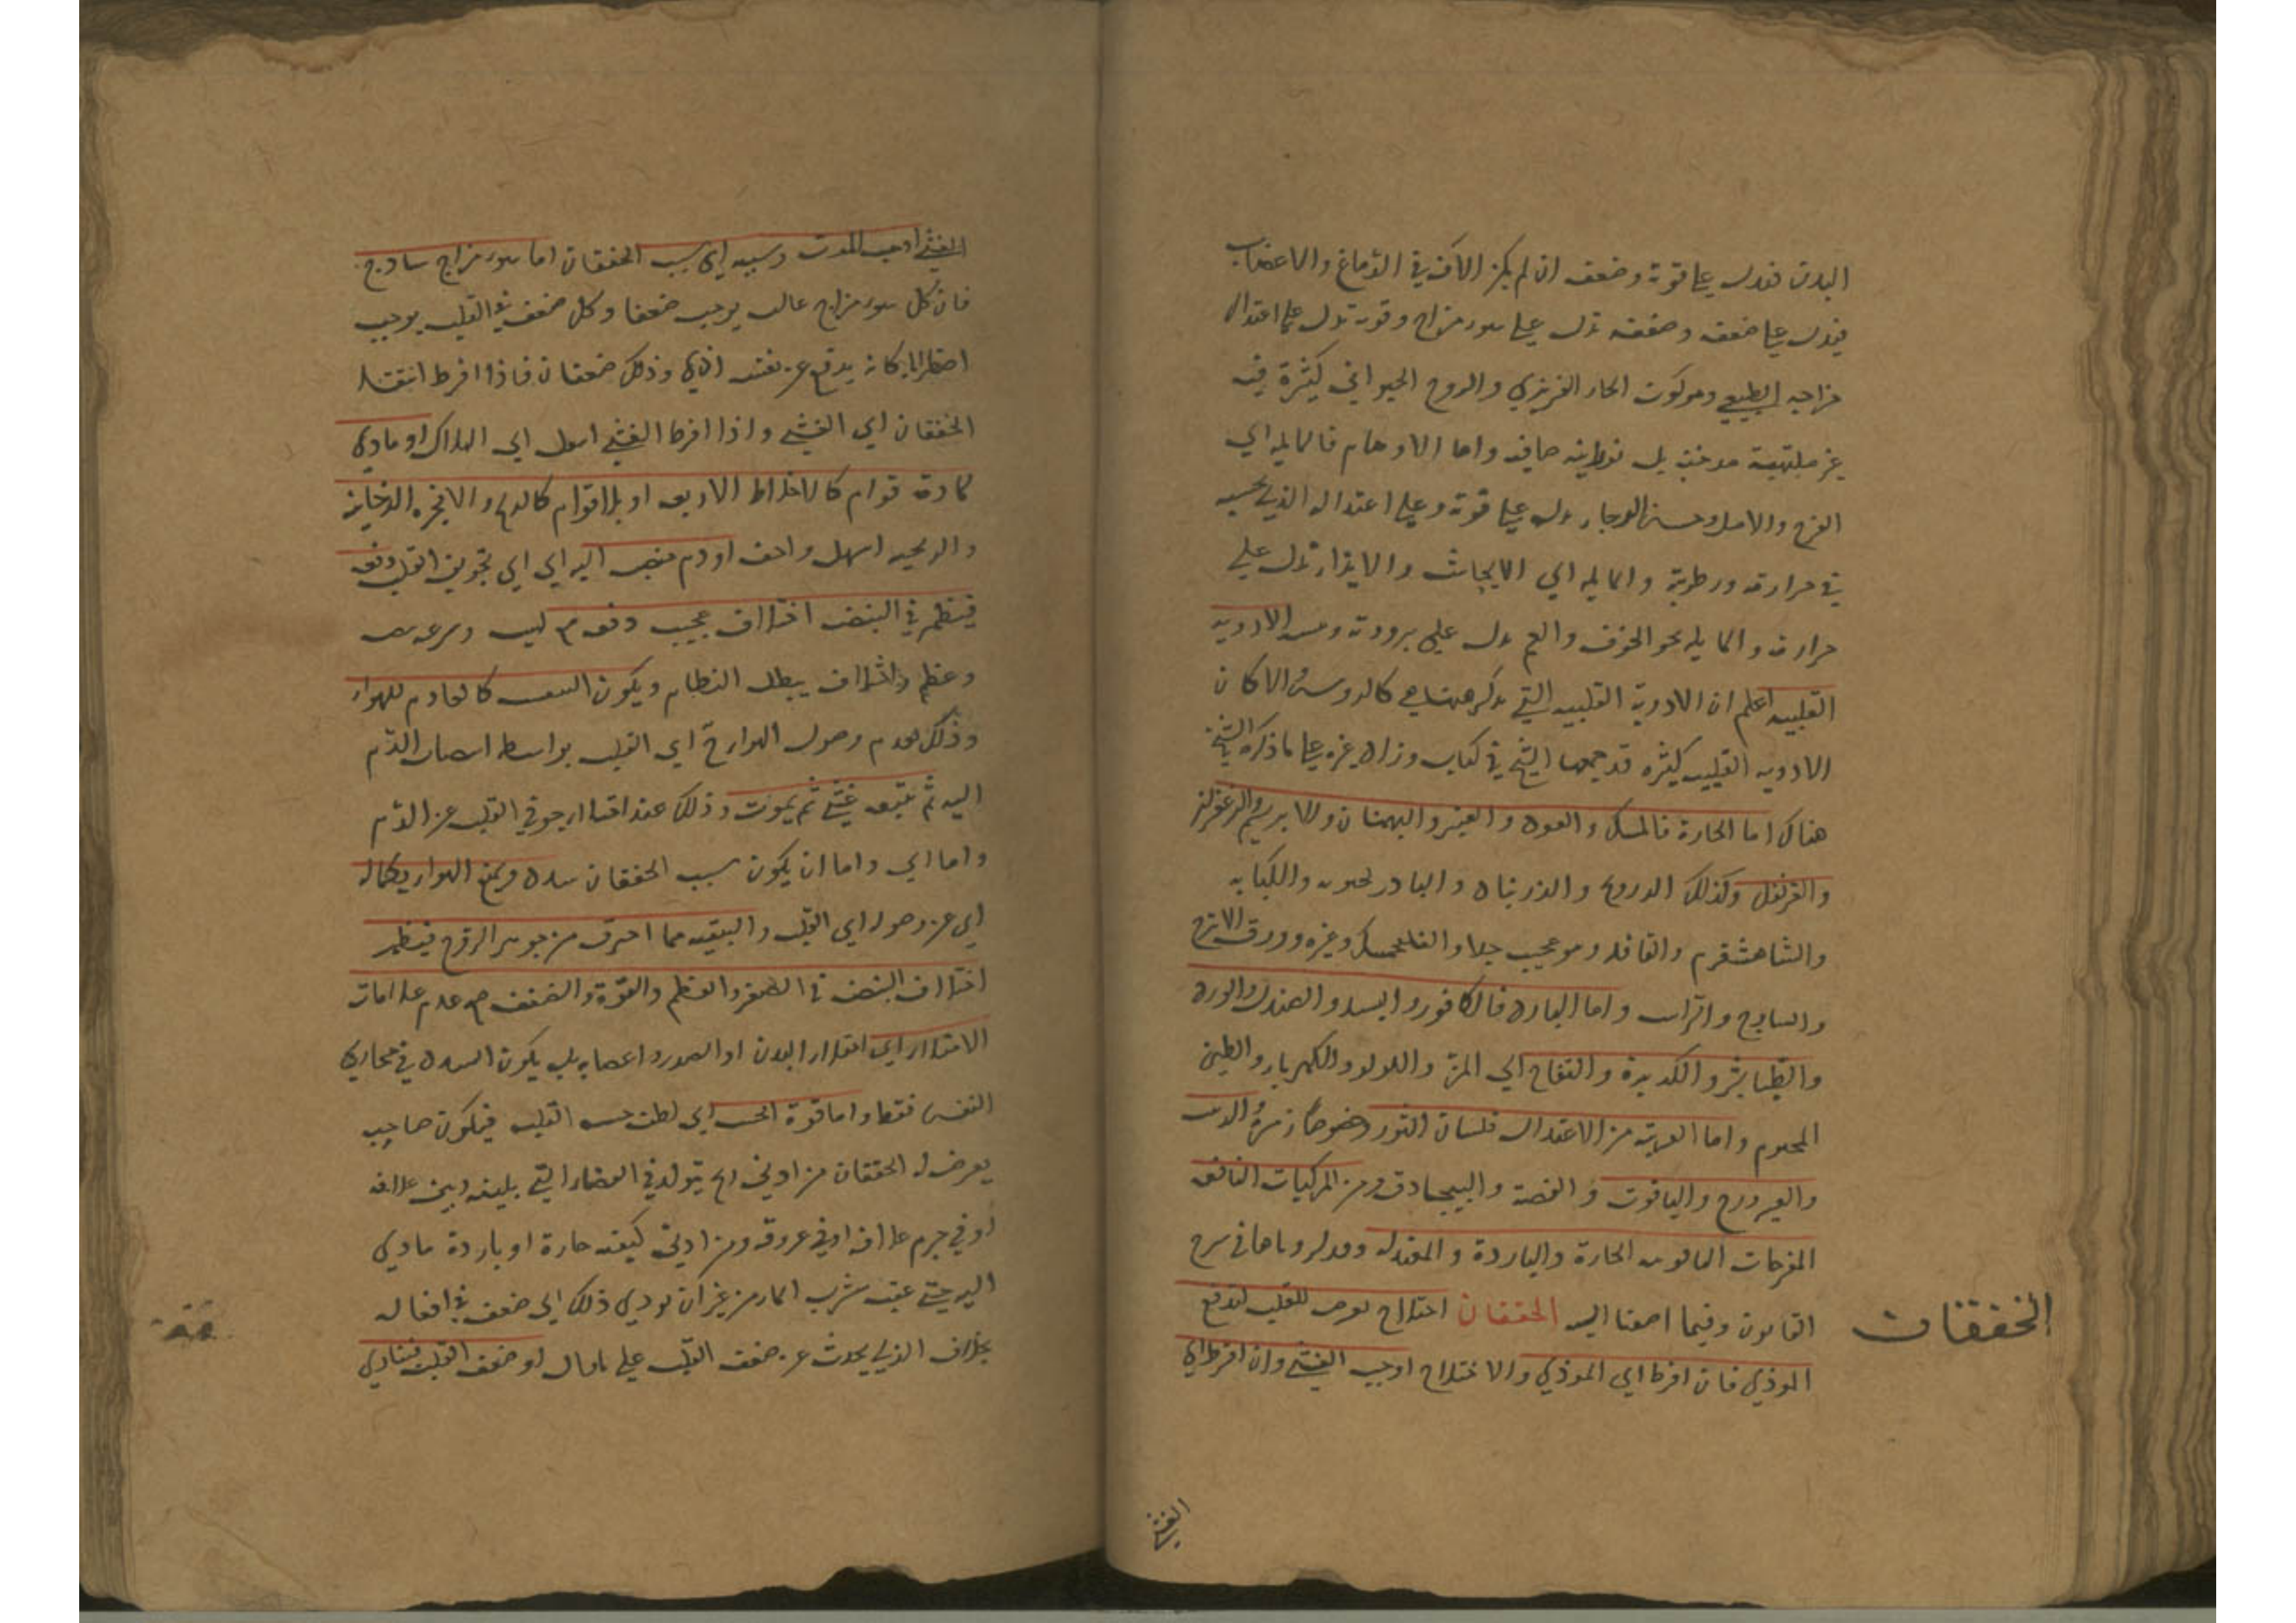 البدن فدل علی قوة وضعف ان لم یکن الآفة فی الدماغ والاعضاب
فیدل علی ضعفه وضعفه تدل علی سوء مزاج وقوته تدل علی اعتدال
مزاجه الطبیعی وهو کون الحار الغریزی والروح الحیوانی کثیرة فیه
غیر ملتهبة مدخنیة بل نورانیة صافیه واما الاوهام فالمایله الی
الفرح والامل وحسن الرجاء یدل علی قوة وعلی اعتداله الذی بحسبه
فی حرارته ورطوبته والمایله الی الایحاش والایذاء تدل علی
حرارته والمایله نحو الخوف والغم یدل علی برودته ویبسه الادویه
القلبیه اعلم ان الادویة القلبیه التی یذکر ههنا هی کالدوس والا کان
الادویه القلبیه کثیره قد جمعها الشیخ فی کتاب وزاد غیره علی ما ذکره الشیخ
هناک اما الحارة فالمسک والعود والعنبر والبهمنان والابریسم والزعفران
والقرنفل وکذلک الدرونج والذرنباد والبادرنجبویه والکبابه
والشاهشفرم والقاقله وهو عجیب جدا والفلنجمسک وغیره وورق الاترج
والسادج والراسن واما البارده فالکافور والبسد والصندل والورد
والطباشیر والکدیرة والتفاح الی المز واللولو والکهربا والطین
المختوم واما القریبة من الاعتدال فلسان الثور وخصوصا زهره والذهب
والفیروزج والیاقوت والفضة والبیجادق ومن المرکبات النافعه
المفرحات الیاقوتیه الحارة والباردة والمعتدله وقد ذکرناها فی شرح
القانون وفیما اضفنا الیه الخفقان اختلاج یعرض للقلب لدفع
الموذی فان افرط ای الموذی والاختلاج اوجب الغشی وان افرط ای
الخفقان
الغشی
الغشی اوجب الموت وسببه ای سبب الخفقان اما سوء مزاج سادج
فان کل سوء مزاج غالب یوجب ضعفا وکل ضعف فی القلب یوجب
اضطرابا کانه یدفع عن نفسه اذی وذلک خفقان فاذا افرط انتقل
الخفقان الی الغشی واذا افرط الغشی امول الی الهلاک او مادی
لمادة قوام کالاخلاط الاربعه او بلا قوام کالریح والابخره الدخانیه
والریحیه اسهل واخف او دم منصب الیه ای الی تجویف القلب دفعه
فیظهر فی النبض اختلاف عجیب دفعه مع لین وسرعه
وعظم واختلاف یبطل النظام ویکون النفس کالعادم للهواء
وذلک لعدم وصول الهواء الی القلب بواسطه انصباب الدم
الیه ثم یتبعه غشی ثم یموت وذلک عند امتلاء جوفی القلب عن الدم
واما ای واما ان یکون سبب الخفقان سدد ویمنع الهواء بکماله
ای عن وصوله الی القلب والبقیه مما احترق من جوهر الروح فیظهر
اختلاف النبض فی الصغر والعظم والقوة والضعف مع عدم علامات
الامتلاء ای امتلاء البدن او الصدر واعضایه بل یکون السدد فی مجاری
النفس فقط واما قوة الحس ای لطف حسه القلب فیکون صاحبه
یعرض له الخفقان من ادنی ریح یتولد فی الفضاء التی بینه وبین غلافه
او فی جرم غلافه او فی عروقه ومن ادنی کیفیه حارة او باردة مادی
الیه حتی عقیب شرب الماء من غیر ان یودی ذلک الی ضعف فی افعاله
بخلاف الذی یحدث عن ضعف القلب علی ما قال او ضعف القلب فیتادی